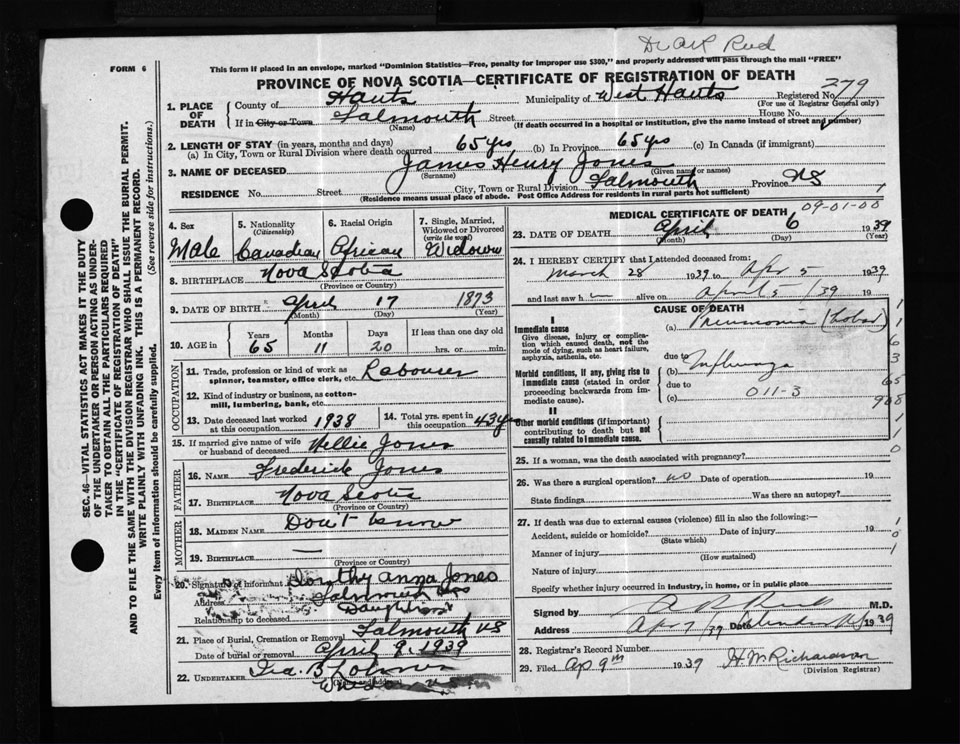 Dr A R Reid
FORM 6
This form if placed in an envelope, marked "Dominion Statistics—Free, penalty for improper use $300," and properly addressed will pass through the mail "FREE"
PROVINCE OF NOVA SCOTIA—CERTIFICATE OF REGISTRATION OF DEATH
279
1. PLACE OF DEATH County of Hants Municipality of West Hants Registered No.
(For use of Registrar General only)
If in City or Town Falmouth Street House No.
(Name) (If death occurred in a hospital or institution, give the name instead of street and number)
2. LENGTH OF STAY (in years, months and days)
(a) In City, Town or Rural Division where death occurred 65 yrs (b) In Province 65 yrs (c) In Canada (if immigrant)
3. NAME OF DECEASED James Henry Jones
(Surname) (Given name or names)
RESIDENCE No. Street City, Town or Rural Division Falmouth Province NS
(Residence means usual place of abode. Post Office Address for residents in rural parts not sufficient)
4. Sex Male
5. Nationality (Citizenship) Canadian
6. Racial Origin African
7. Single, Married, Widowed or Divorced (write the word) Widower
8. BIRTHPLACE Nova Scotia
(Province or Country)
9. DATE OF BIRTH April 17 1873
(Month) (Day) (Year)
10. AGE in Years Months Days If less than one day old
65 11 20 hrs. or min.
OCCUPATION
11. Trade, profession or kind of work as spinner, teamster, office clerk, etc. Labourer
12. Kind of industry or business, as cotton-mill, lumbering, bank, etc.
13. Date deceased last worked at this occupation 1938
14. Total yrs. spent in this occupation 43 yrs
15. If married give name of wife or husband of deceased Nellie Jones
FATHER
16. NAME Frederick Jones
17. BIRTHPLACE Nova Scotia
(Province or Country)
MOTHER
18. MAIDEN NAME Don't know
19. BIRTHPLACE —
(Province or Country)
20. Signature of informant Dorothy Anna Jones
Address Falmouth
Relationship to deceased Daughter
21. Place of Burial, Cremation or Removal Falmouth NS
Date of burial or removal April 9, 1939
22. UNDERTAKER Ira B
(Name and address)
MEDICAL CERTIFICATE OF DEATH
09-01-00
23. DATE OF DEATH April 6 1939
(Month) (Day) (Year)
24. I HEREBY CERTIFY that I attended deceased from:
March 28 1939 to Apr 5 1939
and last saw h m alive on April 5/39 19
CAUSE OF DEATH
I
Immediate cause
Give disease, injury or complication which caused death, not the mode of dying, such as heart failure, asphyxia, asthenia, etc.
(a) Pneumonia (Lobar)
due to
Morbid conditions, if any, giving rise to immediate cause (stated in order proceeding backwards from immediate cause).
(b) Influenza
due to
(c) 011-3
II
Other morbid conditions (if important) contributing to death but not causally related to immediate cause.
25. If a woman, was the death associated with pregnancy?
26. Was there a surgical operation? no Date of operation 19
State findings Was there an autopsy?
27. If death was due to external causes (violence) fill in also the following:—
Accident, suicide or homicide? Date of injury 19
(State which)
Manner of injury
(How sustained)
Nature of injury
Specify whether injury occurred in industry, in home, or in public place
Signed by A R Reid M.D.
Address Apr 7/39 Date Windsor NS 1939
28. Registrar's Record Number
29. Filed Ap 9th 1939 H. M. Richardson
(Division Registrar)
SEC. 46—VITAL STATISTICS ACT MAKES IT THE DUTY
OF THE UNDERTAKER OR PERSON ACTING AS UNDER-
TAKER TO OBTAIN ALL THE PARTICULARS REQUIRED
IN THE "CERTIFICATE OF REGISTRATION OF DEATH"
AND TO FILE THE SAME WITH THE DIVISION REGISTRAR WHO SHALL ISSUE THE BURIAL PERMIT.
WRITE PLAINLY WITH UNFADING INK. THIS IS A PERMANENT RECORD.
Every item of information should be carefully supplied. (See reverse side for instructions.)